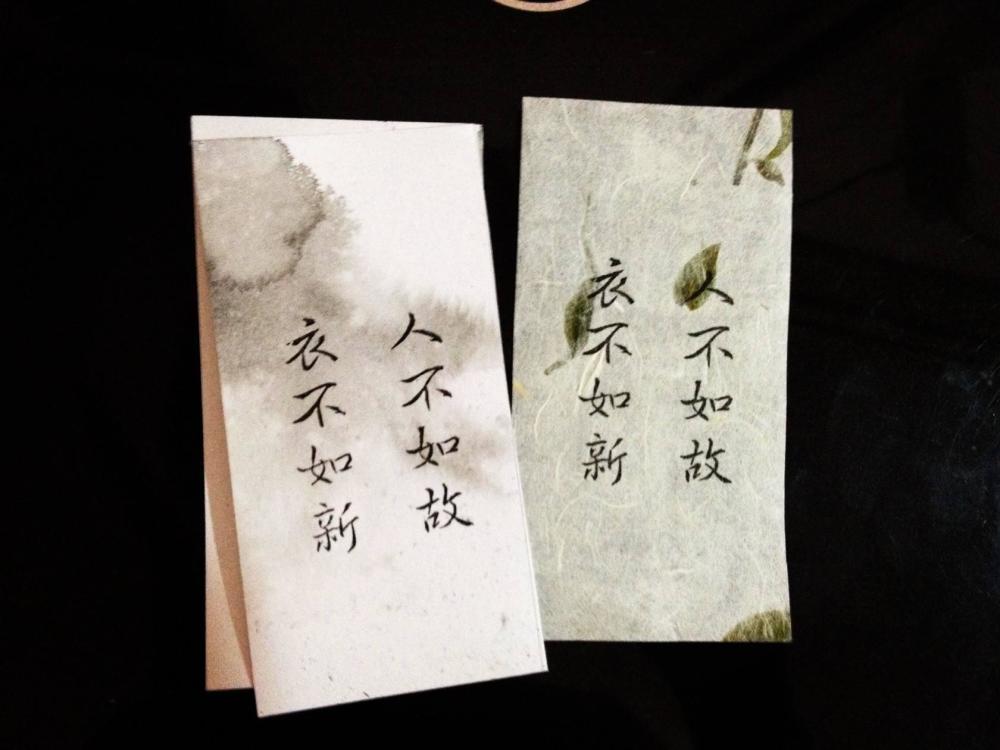 人不如故
衣不如新
人不如故
衣不如新